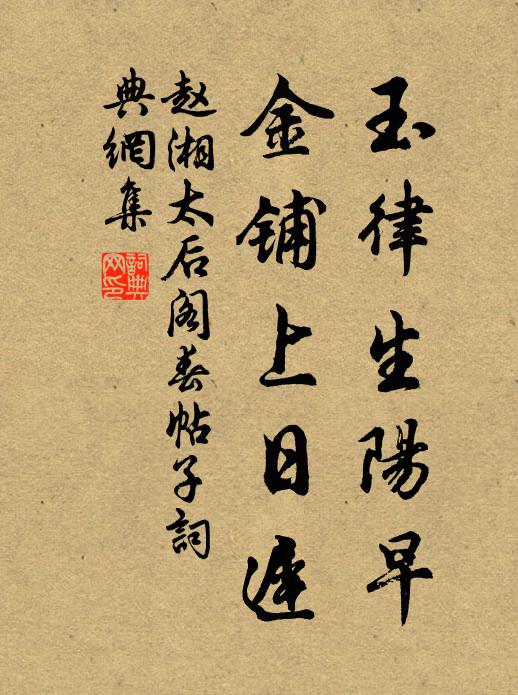 玉律生陽早
金铺上日遲
赵湘太后阁春帖子詞
典網集
詞典网印